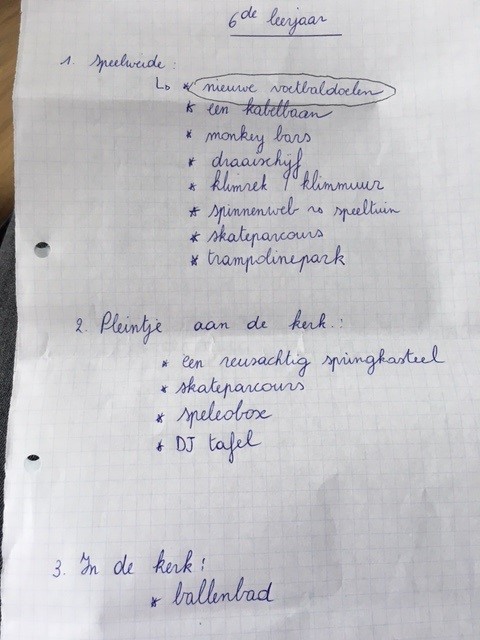 6de leerjaar
1. speelweide :
↳ * nieuwe voetbaldoelen
* een kabelbaan
* monkey bars
* draaischijf
* klimrek / klimmuur
* spinnenweb → speeltuin
* skateparcours
* trampolinepark
2. Pleintje aan de kerk :
* een reusachtig springkasteel
* skateparcours
* speleobox
* DJ tafel
3. In de kerk :
* ballenbad